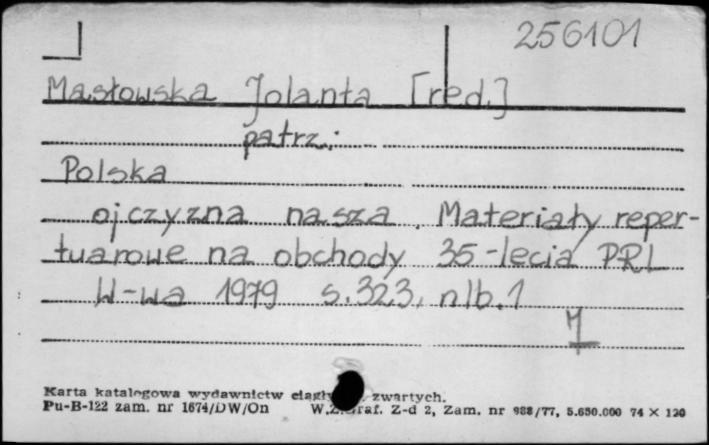 256101
Masłowska Jolanta [red.]
patrz:
Polska
ojczyzna nasza. Materiały reper-
tuarowe na obchody 35-lecia PRL
W-wa 1979 s. 323, nlb. 1
Karta katalogowa wydawnictw zwartych.
Pu-B-122 zam. nr 1674/DW/On Z-d 2, Zam. nr 988/77, 5.650.000 74 × 120